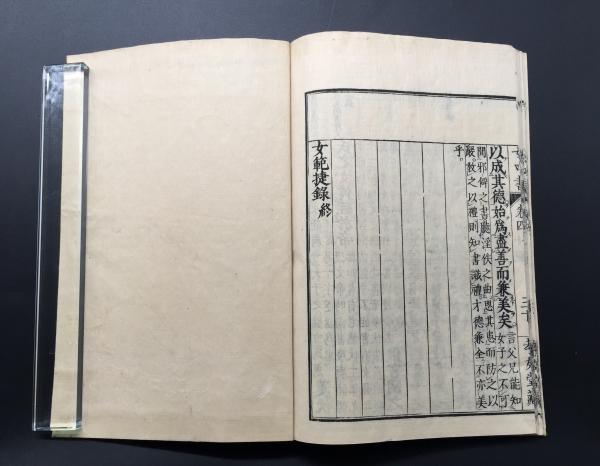 以成其德始爲盡善而兼美矣言父兄能知女子之不可
閱邪僻之書聽淫佚之曲思其患而防之以
嚴教之以禮則知書識禮才德兼全不亦美
乎
女範捷錄終
卷四
三十